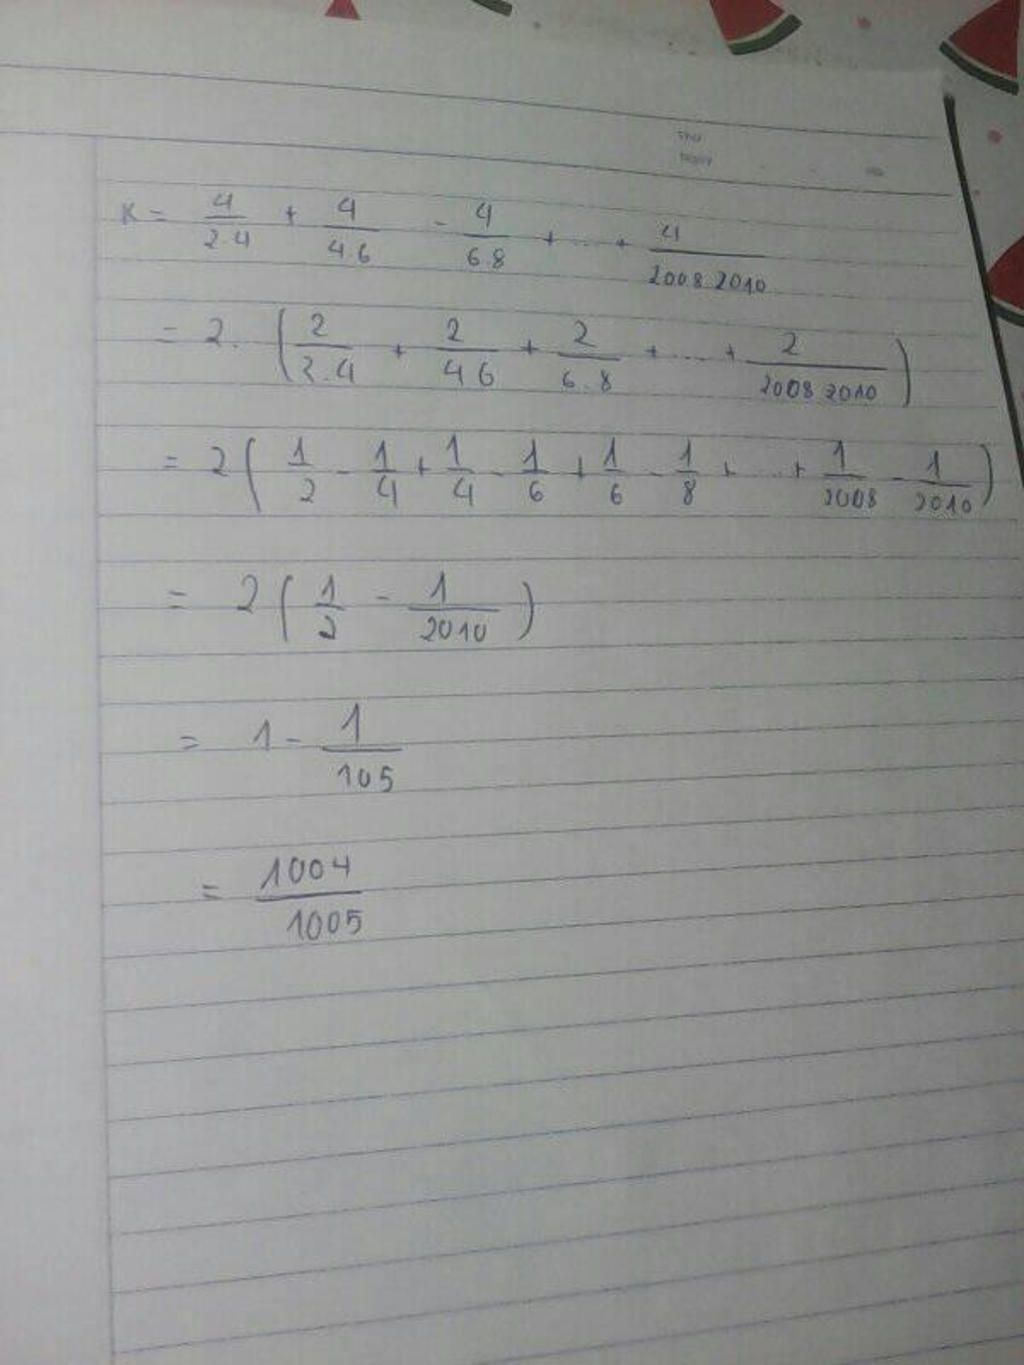 Thứ
Ngày
K = 4/2.4 + 4/4.6 - 4/6.8 + ... + 4/2008.2010
= 2. (2/2.4 + 2/4 6 + 2/6.8 + ... + 2/2008 2010)
= 2 (1/2 - 1/4 + 1/4 - 1/6 + 1/6 - 1/8 + ... + 1/2008 - 1/2010)
= 2 (1/2 - 1/2010)
= 1 - 1/105
= 1004/1005